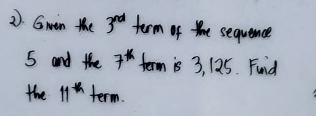 2). Given the 3rd term of the sequence
5 and the 7th term is 3,125. Find
the 11th term.